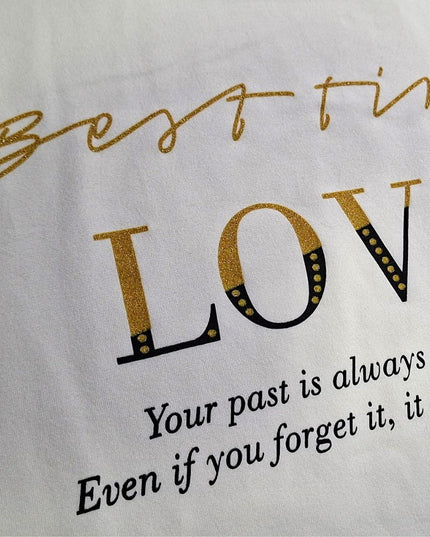 Best ti
LOV
Your past is always
Even if you forget it, it